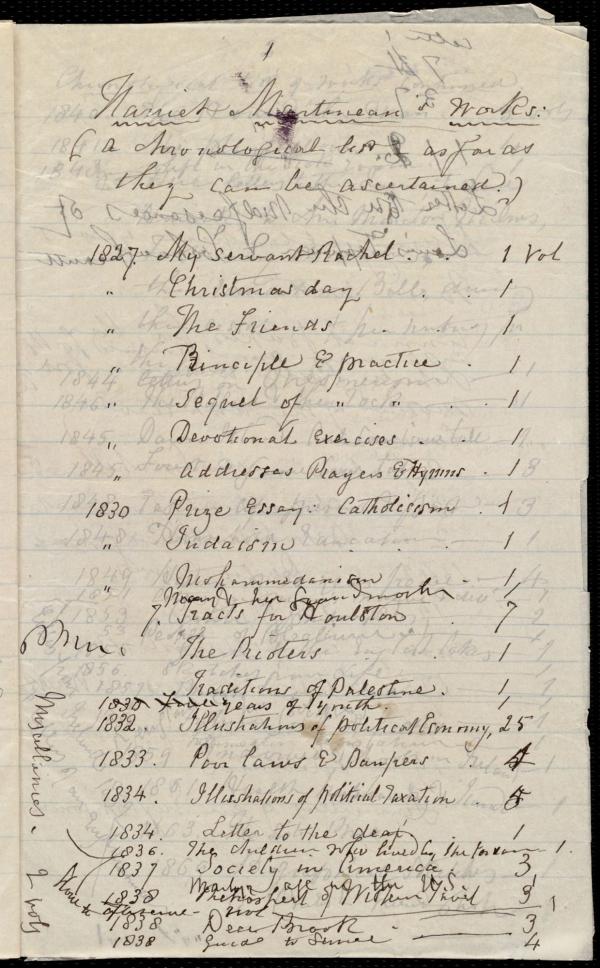 1
Harriet Martineau's Works:
(a chronological list as far as
they can be ascertained.)
1827. My Servant Rachel . . 1 Vol
" Christmas day . . 1
" The Friends . . 1
" Principle & practice - 1
" Sequel of " " - 1
" Devotional Exercises . . 1
" Addresses Prayers & Hymns . 1
1830 Prize Essay: Catholicism . 1
" Judaism . . . 1
" Mohammedanism 1
Mary & her Grandmother
7. Tracts for Houlston . 7
The Rioters . 1
Traditions of Palestine . 1
1830 years of Youth . 1
1832. Illustrations of political Economy, 25
1833. Poor laws & Paupers 4
1834. Illustrations of political Taxation . 5
1834. Letter to the deaf 1
1836. The children who lived by the 1.
1837 Society in America . 3
1838 Retrospect of Western Travel 3
1838 Deer Brook - 3
1838 Guide to Service 4
Miscellanies. 2 vols